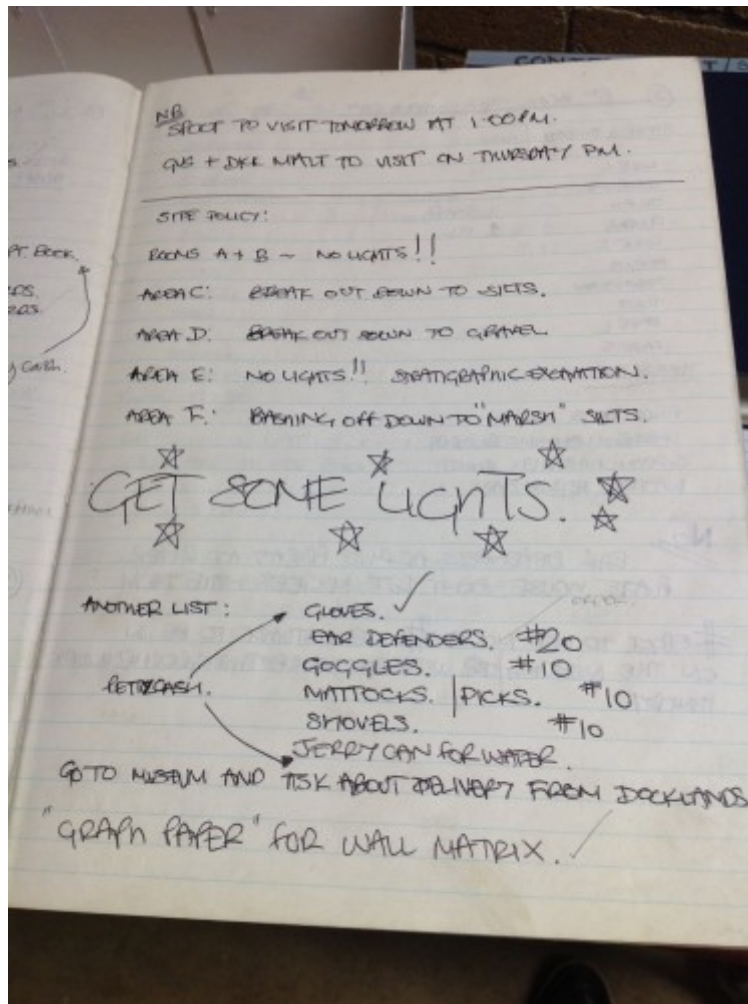 NB
SPOOT TO VISIT TOMORROW AT 1:00PM.
GUS + DKK MALT TO VISIT ON THURSDAY PM.
SITE POLICY:
ROOMS A + B ~ NO LIGHTS!!
AREA C: BREAK OUT DOWN TO SILTS.
AREA D: BREAK OUT DOWN TO GRAVEL
AREA E: NO LIGHTS!! STRATIGRAPHIC EXCAVATION.
AREA F: BASHING OFF DOWN TO "MARSH" SILTS.
GET SOME LIGHTS.
ANOTHER LIST: GLOVES. ✓
EAR DEFENDERS. #20
GOGGLES. #10
PETTY CASH. MATTOCKS. | PICKS. #10
SHOVELS. #10
JERRY CAN FOR WATER.
GO TO MUSEUM AND ASK ABOUT DELIVERY FROM DOCKLANDS
"GRAPH PAPER" FOR WALL MATRIX. ✓